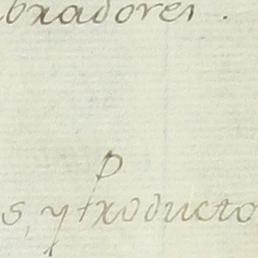 bradores .
P
s, y producto